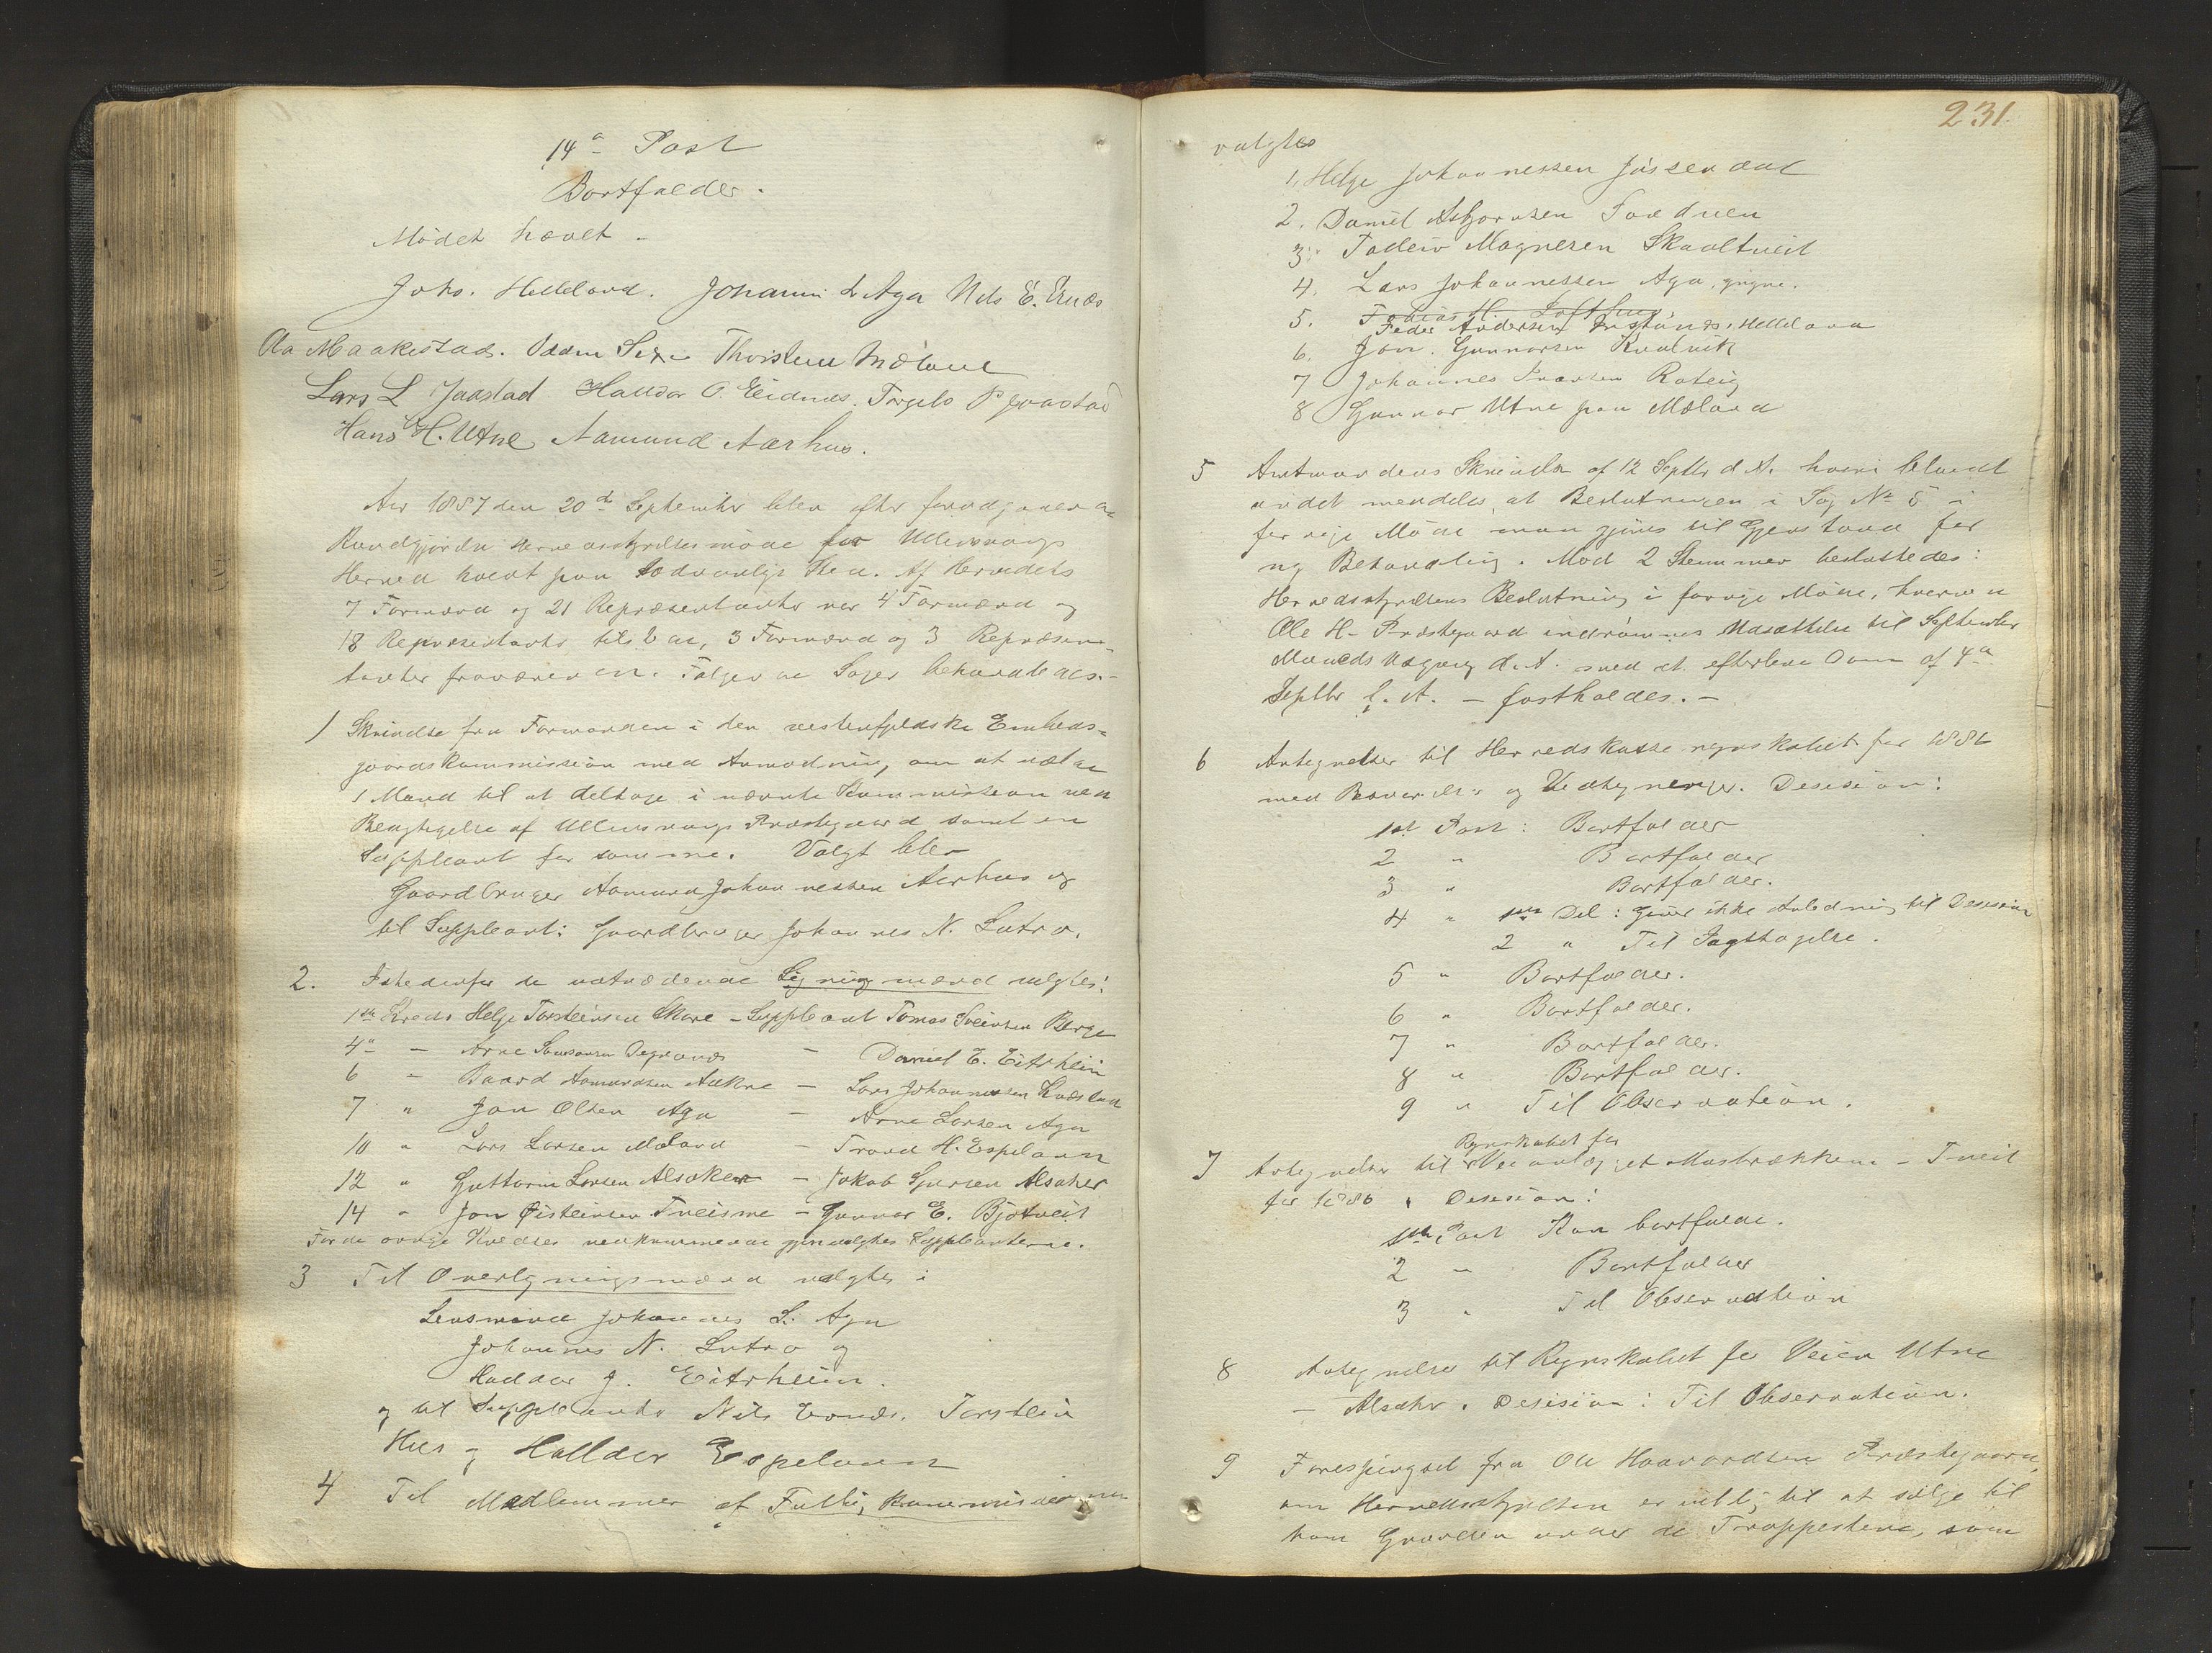 14de Post
Bortfalder.
Mødet hævet -
Johs. Helleland. Johannes L Aga Nils E. Ernæs
Aa Maakestad. Oddm Sexe Thorstein Mæland
Lars L Jaastad Haldor O. Eidnæs. Torgils P Jaastad
Hans H. Utne, Aamund Aarhus.
Aar 1887 den 20de September blev efter foregaaende
Kundgjørelse Herredsstyrelsesmøde for Ullensvangs
Herred holdt paa sædvanlige Sted. Af Herredets
7 Formænd og 21 Repræsentanter var 4 Formænd og
18 Repræsentanter tilstede, 3 Formænd og 3 Repræsen-
tanter fraværende. Følgende Sager behandledes.-
1 Skrivelse fra Formanden i den vestenfjeldske Embeds-
gaardskommission med Anmodning, om at vælge
1 Mand til at deltage i nævnte Kommission ved
Besigtigelse af Ullensvangs Præstegaard samt en
Suppleant for samme. Valgt blev
Gaardbruger Aamund Johannessen Aarhus og
til Suppleant: Gaardbruger Johannes N. Lutro.
2. Istedenfor de udtrædende Ligningsmænd valgtes:
1ste Kreds Helge Torsteinsen Skare - Suppleant Tomas Sveinsen Berge
4de - Arne Samsonsen Degrænæs - Daniel E. Eitrheim
6 - Baard Aamundsen Aakre - Lars Johannessen
7 " Jon Olsen Aga - Arne Larsen Aga
10 " Lars Larsen Mæland - Trond H. Espeland
12 " Guttorm Larsen Alsaker - Jakob Larsen Alsaker
14 " Jon Øisteinsen Tveisme - Gunnar E. Bjotveit
For de øvrige Kredses vedkommende gjenvalgtes Suppleanterne.
3 Til Overligningsmænd valgtes:
Lensmand Johannes L. Aga
Johannes N. Lutro og
Haldor J. Eitrheim.
og til Suppleanter Nils Ernæs, Torstein
Hus og Halldor Espeland
4 Til Medlemmer af Fattigkommissionen
231
valgtes
1, Helge Johannessen Jøsendal
2. Daniel Asbjørnsen Freднen
3. Tolleiv Magnesen Skaaltveit
4. Lars Johannessen Aga, yngre.
5. Tobias H. Lofthus
Peder Andersen Instanæs, Helleland
6. Jon. Gunnarsen Kvalvik
7 Johannes Ivarsen Rateig
8 Gunnar Utne paa Mæland
5 Amtmandens Skrivelse af 12 Septbr d. A. hvori blandt
andet meddeles, at Beslutningen i Sag No 5 i
forrige Møde maa gjøres til Gjenstand for
ny Behandling. Mod 2 Stemmer besluttedes:
Herredsstyrelsens Beslutning i forrige Møde, hvorved
Ole H. Præstegaard indrømmes Udsættelse til September
Maaneds Udgang d. A. med at efterleve Dom af 4de
Septbr f. A. - fastholdes.-
6 Antegnelser til Herredskasseregnskabet for 1886
med Besvarelse og Vedtegninger. Desision:
1ste Post: Bortfalder
2 " Bortfalder
3 " Bortfalder.
4 " 1ste Del: Giver ikke Anledning til Desision
2 " Til Iagttagelse.
5 " Bortfalder.
6 " Bortfalder.
7 " Bortfalder.
8 " Bortfalder.
9 " Til Observation.
Regnskabet for
7 Antegnelser til Veianlægget Mastrækkene - Tveit
for 1886. Desision:
1ste Post Kan bortfalde.
2 " Bortfalder
3 " Til Observation
8 Antegnelser til Regnskabet for Veien Utne
- Alsaker. Desision: Til Observation.
9 Forespørgsel fra Ole Haavardsen Præstegaard,
om Herredsstyrelsen er villig til at sælge til
ham Grunden under de Trappestene, som